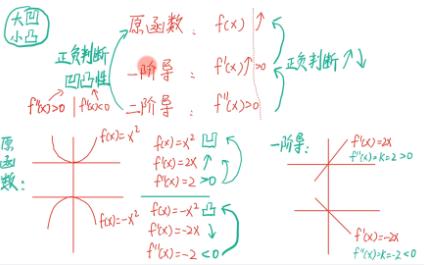 大凹
小凸
原函数: f(x)↑
正负判断
凹凸性
一阶导: f'(x)↑>0
正负判断↑↓
f''(x)>0 f''(x)<0
二阶导: f''(x)>0
原函数:
f(x)=x²
f(x)=x² 凹
f'(x)=2x ↑
f''(x)=2>0
f(x)=-x²
f(x)=-x² 凸
f'(x)=-2x ↓
f''(x)=-2<0
一阶导:
f'(x)=2x
f''(x)=k=2>0
f'(x)=-2x
f''(x)=k=-2<0